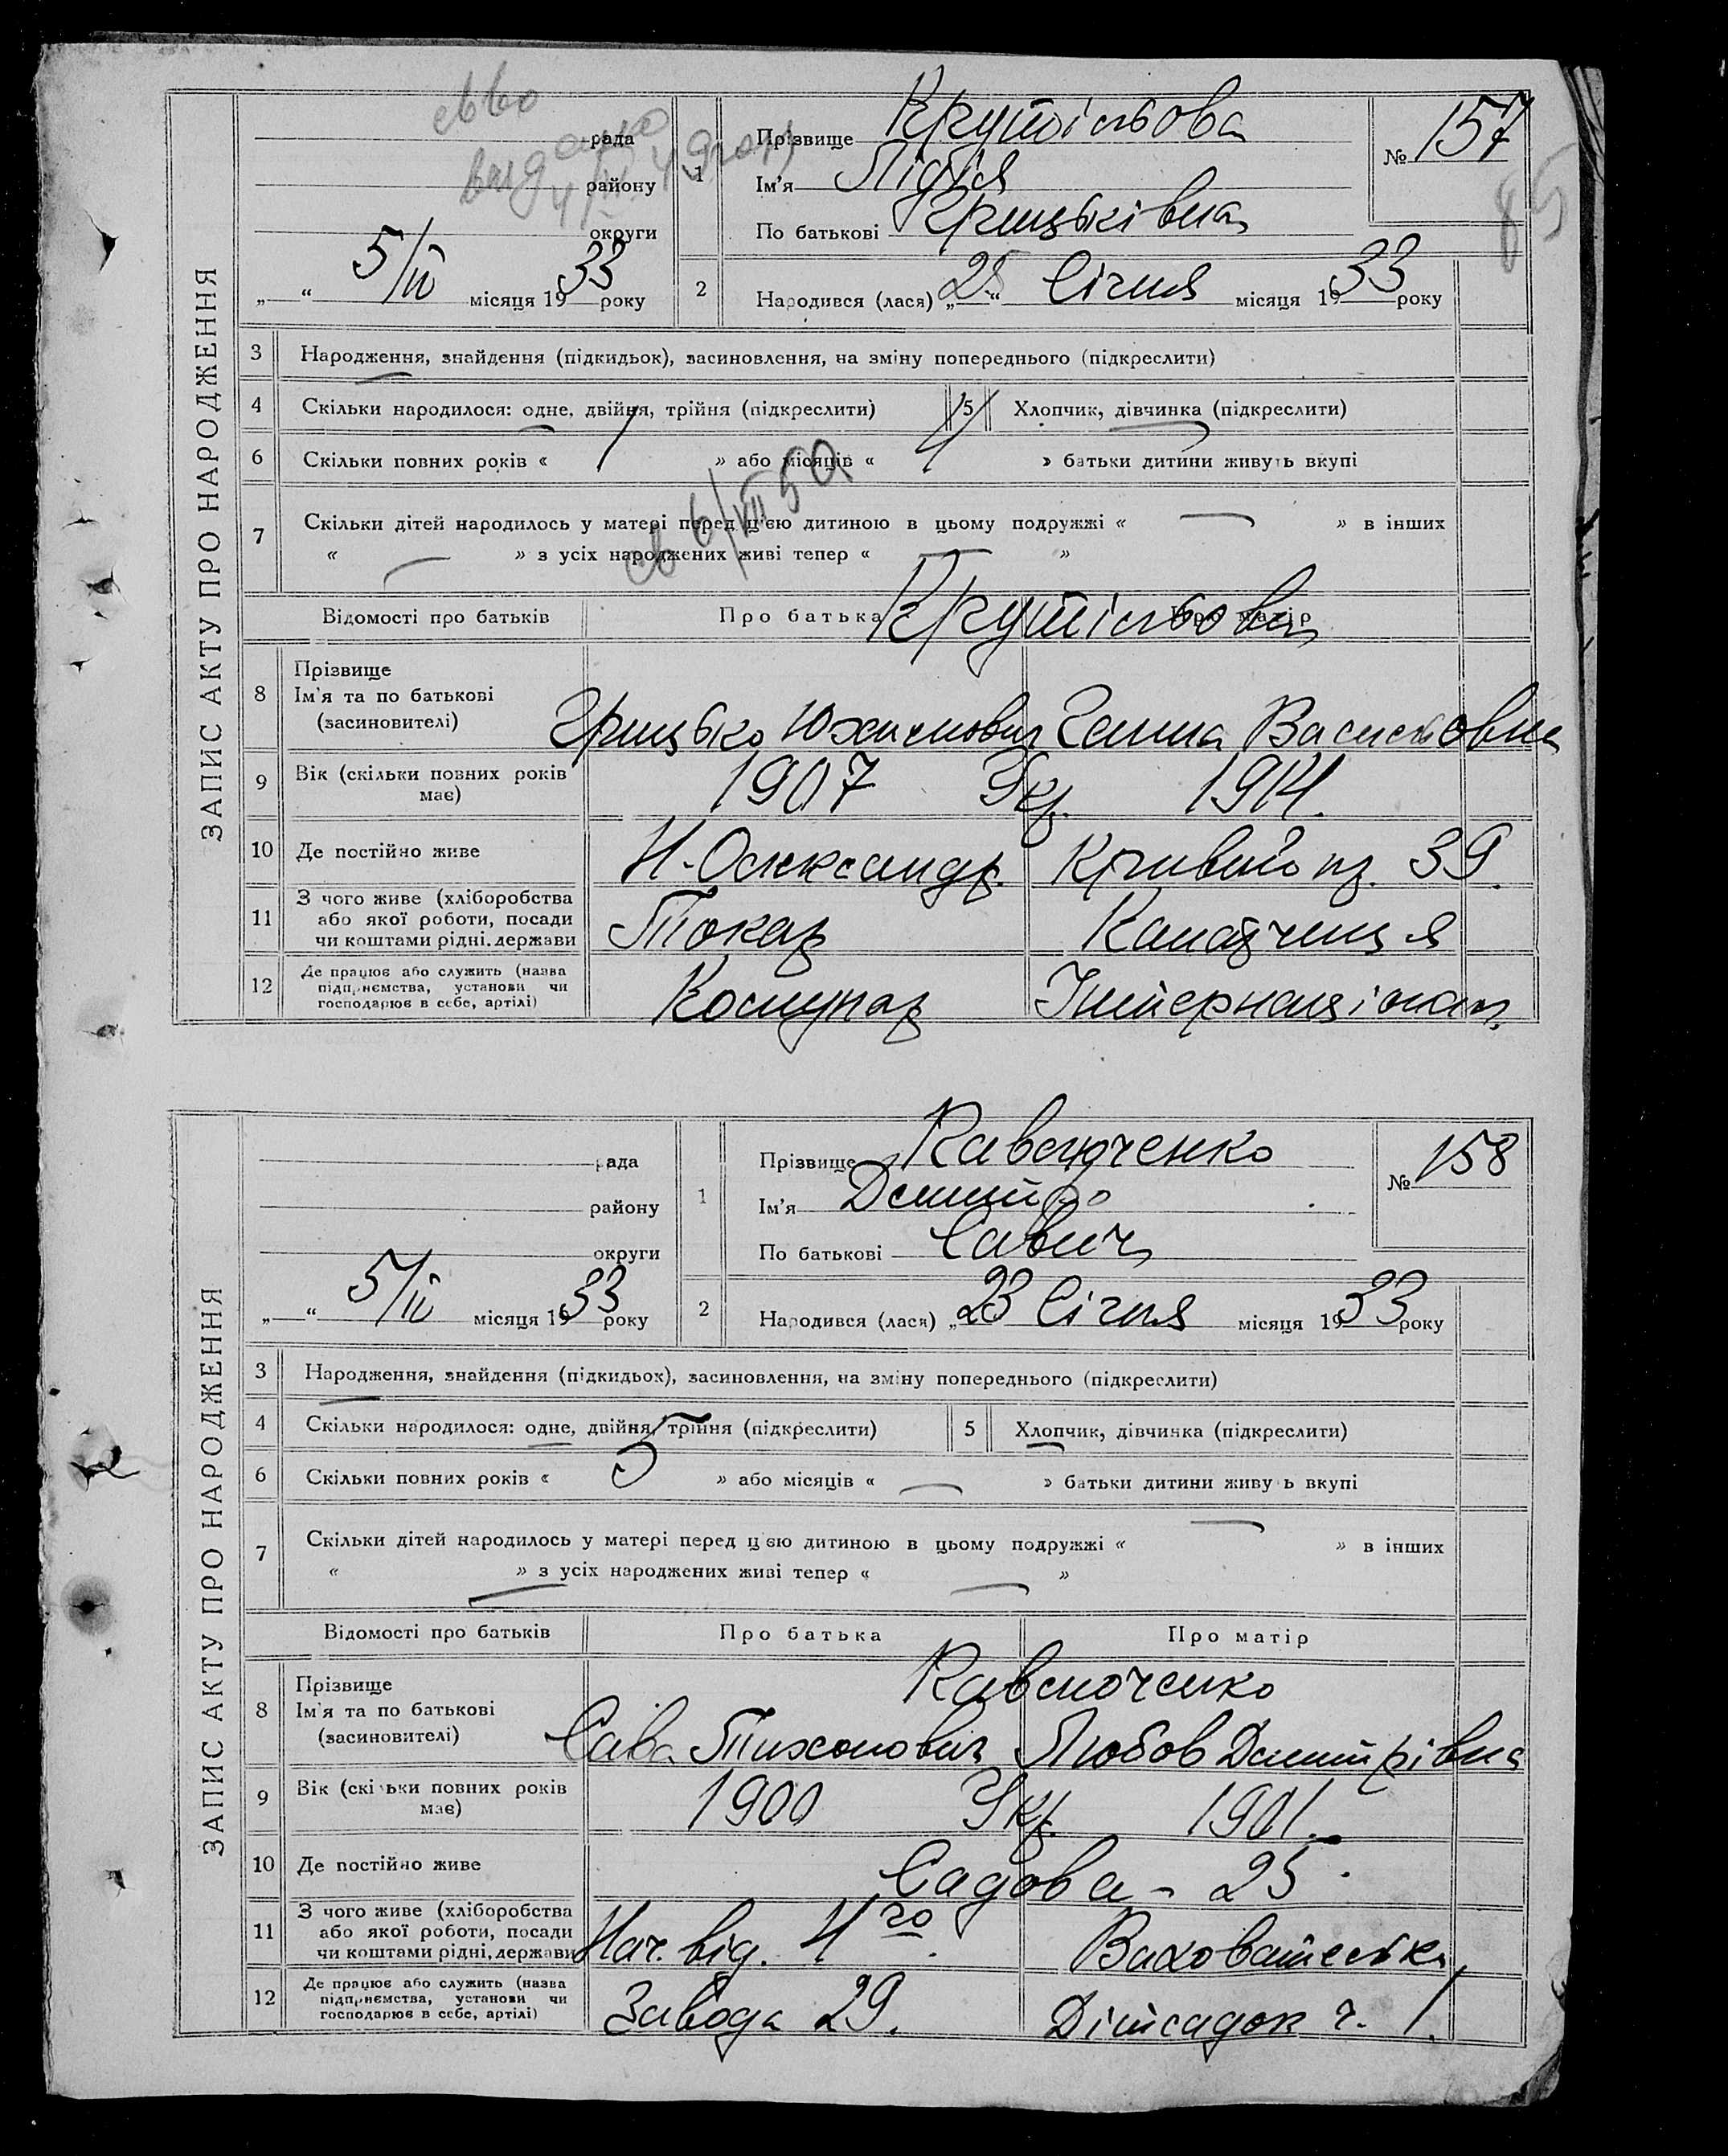 ЗАПИС АКТУ ПРО НАРОДЖЕННЯ
рада
району
округи
„ “ 5/II місяця 1933 року
1
Прізвище
Ім'я Лідія
По батькові Грицьківна
№ 157
85
2
Народився (лася) „25“ Січня місяця 1933 року
3 Народження, знайдення (підкидьок), засиновлення, на зміну попереднього (підкреслити)
4 Скільки народилося: одне, двійня, трійня (підкреслити)
5 Хлопчик, дівчинка (підкреслити)
6 Скільки повних років « 1 » або місяців « » батьки дитини живуть вкупі
7 Скільки дітей народилось у матері перед ц'єю дитиною в цьому подружжі « — » в інших
« — » з усіх народжених живі тепер « — »
св 6/VII 50
Відомості про батьків Про батька Про матір
8 Прізвище
Ім'я та по батькові
(засиновителі)
Грицько Юхимович Ганна Василівна
9 Вік (скільки повних років має) 1907 Укр. 1914.
10 Де постійно живе Н-Олександр. Кривий пр. 39.
11 З чого живе (хліборобства або якої роботи, посади чи коштами рідні, держави Токар
12 Де працює або служить (назва підприємства, установи чи господарює в себе, артілі) Комунар Інтернаціонал
ЗАПИС АКТУ ПРО НАРОДЖЕННЯ
рада
району
округи
„ “ 5/II місяця 1933 року
1
Прізвище Равлюченко
Ім'я Дмитро
По батькові Савич
№ 158
2
Народився (лася) „23 Січня місяця 1933 року
3 Народження, знайдення (підкидьок), засиновлення, на зміну попереднього (підкреслити)
4 Скільки народилося: одне, двійня, трійня (підкреслити)
5 Хлопчик, дівчинка (підкреслити)
6 Скільки повних років « 5 » або місяців « — » батьки дитини живуть вкупі
7 Скільки дітей народилось у матері перед ц'єю дитиною в цьому подружжі « — » в інших
« — » з усіх народжених живі тепер « — »
Відомості про батьків Про батька Про матір
8 Прізвище
Ім'я та по батькові
(засиновителі)
Равлюченко
Сава Тихонович Любов Дмитрівна
9 Вік (скільки повних років має) 1900 Укр. 1901.
10 Де постійно живе Садова - 25
11 З чого живе (хліборобства або якої роботи, посади чи коштами рідні, держави Нач. від. 4го Вихователька
12 Де працює або служить (назва підприємства, установи чи господарює в себе, артілі) Завода 29. Дітсадок ч. 1.